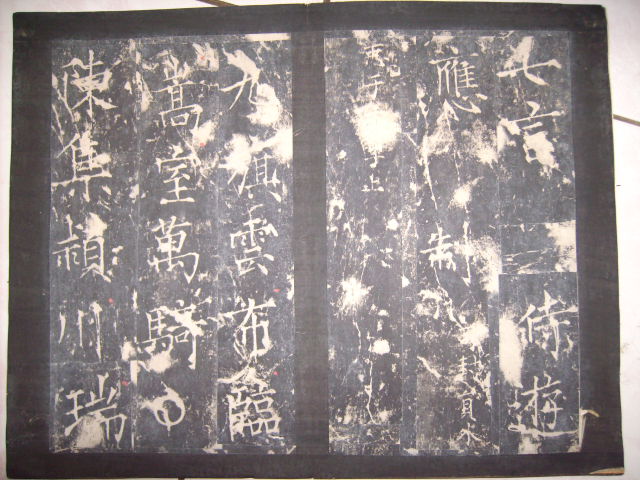 七言侍遊
應制
九旗雲布臨
嵩室萬騎〇
陳集潁川瑞